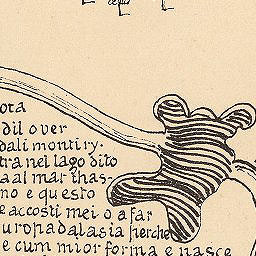 ota
dil over
dali montiry.
tra nel lago dito
a al mar thas-
no e questo
e accosti mei o a far
uropa dal asia fierche
e cum mior forma e nasce